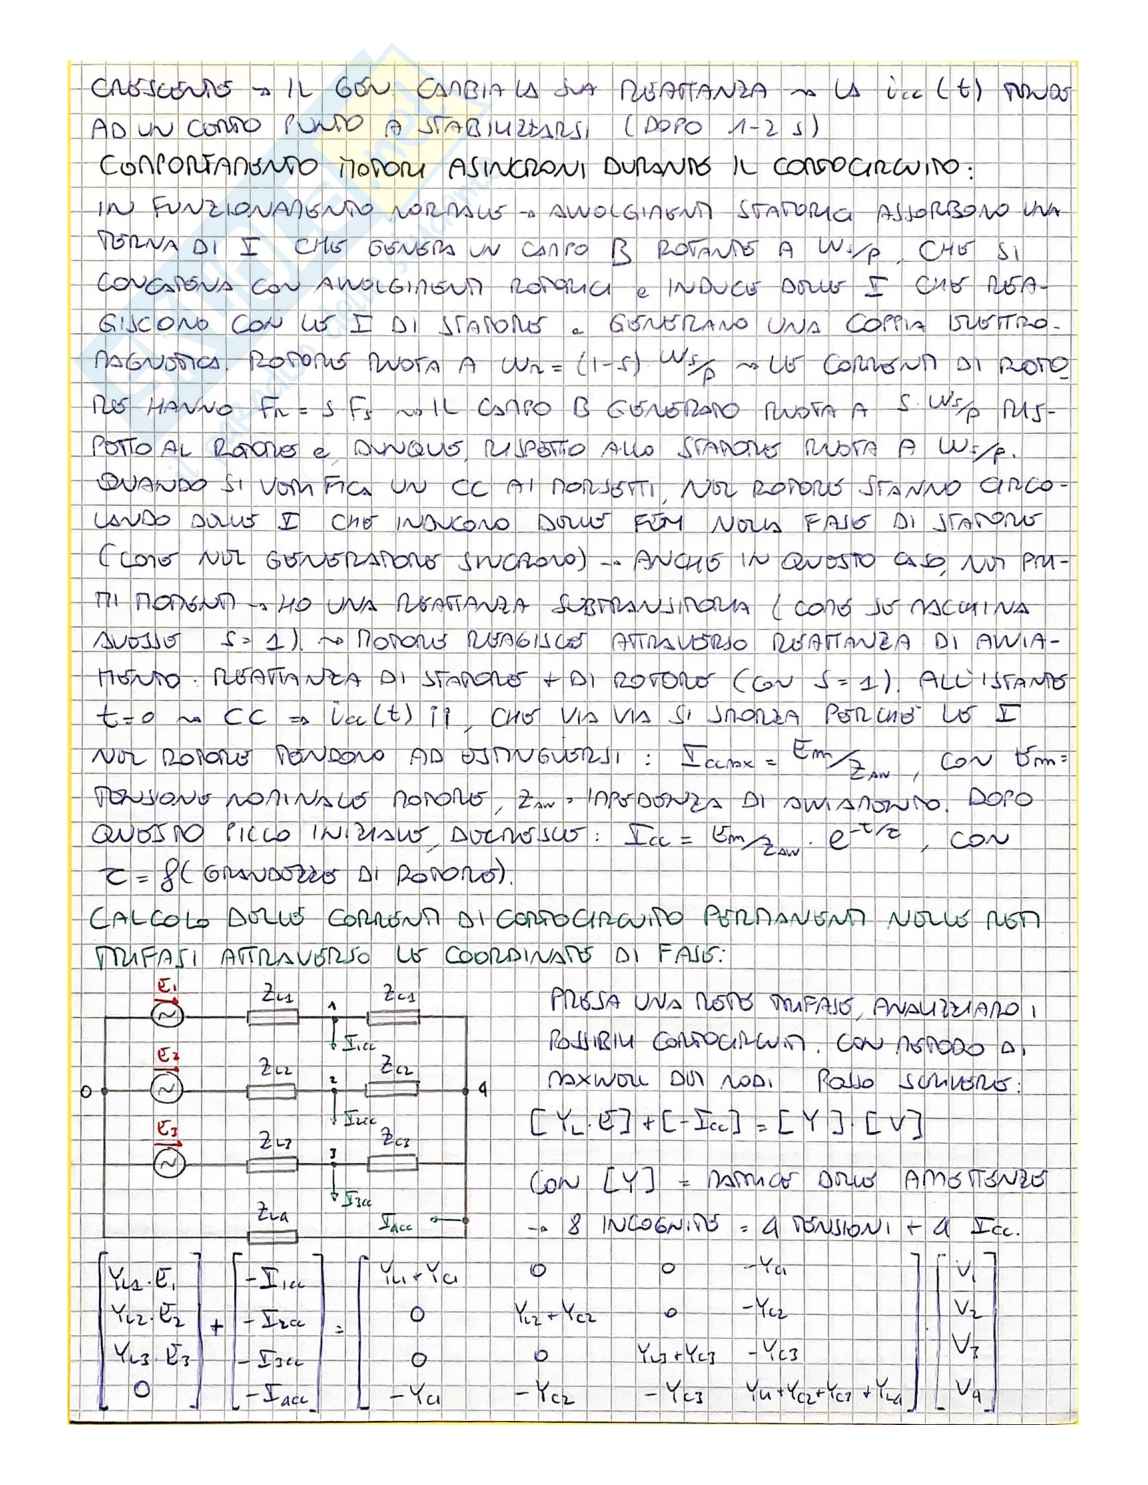 CRESCENTE → IL GEN. CAMBIA LA SUA REATTANZA → LA icc(t) TENDE
AD UN CERTO PUNTO A STABILIZZARSI (DOPO 1-2 s)
COMPORTAMENTO MOTORI ASINCRONI DURANTE IL CORTOCIRCUITO:
IN FUNZIONAMENTO NORMALE → AVVOLGIMENTI STATORICI ASSORBONO UNA
TERNA DI I CHE GENERA UN CAMPO B ROTANTE A Ws/p, CHE SI
CONCATENA CON AVVOLGIMENTI ROTORICI e INDUCE DELLE I CHE REA-
GISCONO CON LE I DI STATORE e GENERANO UNA COPPIA ELETTRO-
MAGNETICA. ROTORE RUOTA A Wr = (1-s) Ws/p → LE CORRENTI DI ROTO
RE HANNO Fr = s Fs → IL CAMPO B GENERATO RUOTA A s·Ws/p RIS-
PETTO AL ROTORE e, DUNQUE, RISPETTO ALLO STATORE RUOTA A Ws/p.
QUANDO SI VERIFICA UN CC AI MORSETTI, NEL ROTORE STANNO CIRCO-
LANDO DELLE I CHE INDUCONO DELLE FEM NELLA FASE DI STATORE
(COME NEL GENERATORE SINCRONO) → ANCHE IN QUESTO CASO, NEI PRI-
MI MOMENTI → HO UNA REATTANZA SUBTRANSITORIA (COME SE MACCHINA
AVESSE s=1) → MOTORE REAGISCE ATTRAVERSO REATTANZA DI AVVIA-
MENTO: REATTANZA DI STATORE + DI ROTORE (CON s=1). ALL'ISTANTE
t=0 → CC ⇒ icc(t) ↑↑, CHE VIA VIA SI SMORZA PERCHÉ LE I
NEL ROTORE TENDONO AD ESTINGUERSI: Iccmax = Em/ZAW, CON Em=
TENSIONE NOMINALE MOTORE, ZAW = IMPEDENZA DI AVVIAMENTO. DOPO
QUESTO PICCO INIZIALE, DECRESCE: Icc = Em/ZAW · e^-t/τ, CON
τ = f(GRANDEZZE DI ROTORE).
CALCOLO DELLE CORRENTI DI CORTOCIRCUITO PERMANENTI NELLE RETI
TRIFASI ATTRAVERSO LE COORDINATE DI FASE:
E1 ZL1 1 ZC1
I1cc
PRESA UNA RETE TRIFASE, ANALIZZIAMO I
POSSIBILI CORTOCIRCUITI. CON METODO DI
0 E2 ZL2 2 ZC2 4
MAXWELL DEI NODI POSSO SCRIVERE:
I2cc
[YL·E]+[-Icc]=[Y]·[V]
E3 ZL3 3 ZC3
I3cc
CON [Y] = MATRICE DELLE AMETTENZE
ZL4 I4cc
→ 8 INCOGNITE = 4 TENSIONI + 4 Icc.
YL1·E1 -I1cc YL1+YC1 0 0 -YC1 V1
YL2·E2 + -I2cc = 0 YL2+YC2 0 -YC2 · V2
YL3·E3 -I3cc 0 0 YL3+YC3 -YC3 V3
0 -I4cc -YC1 -YC2 -YC3 YC1+YC2+YC3+YL4 V4